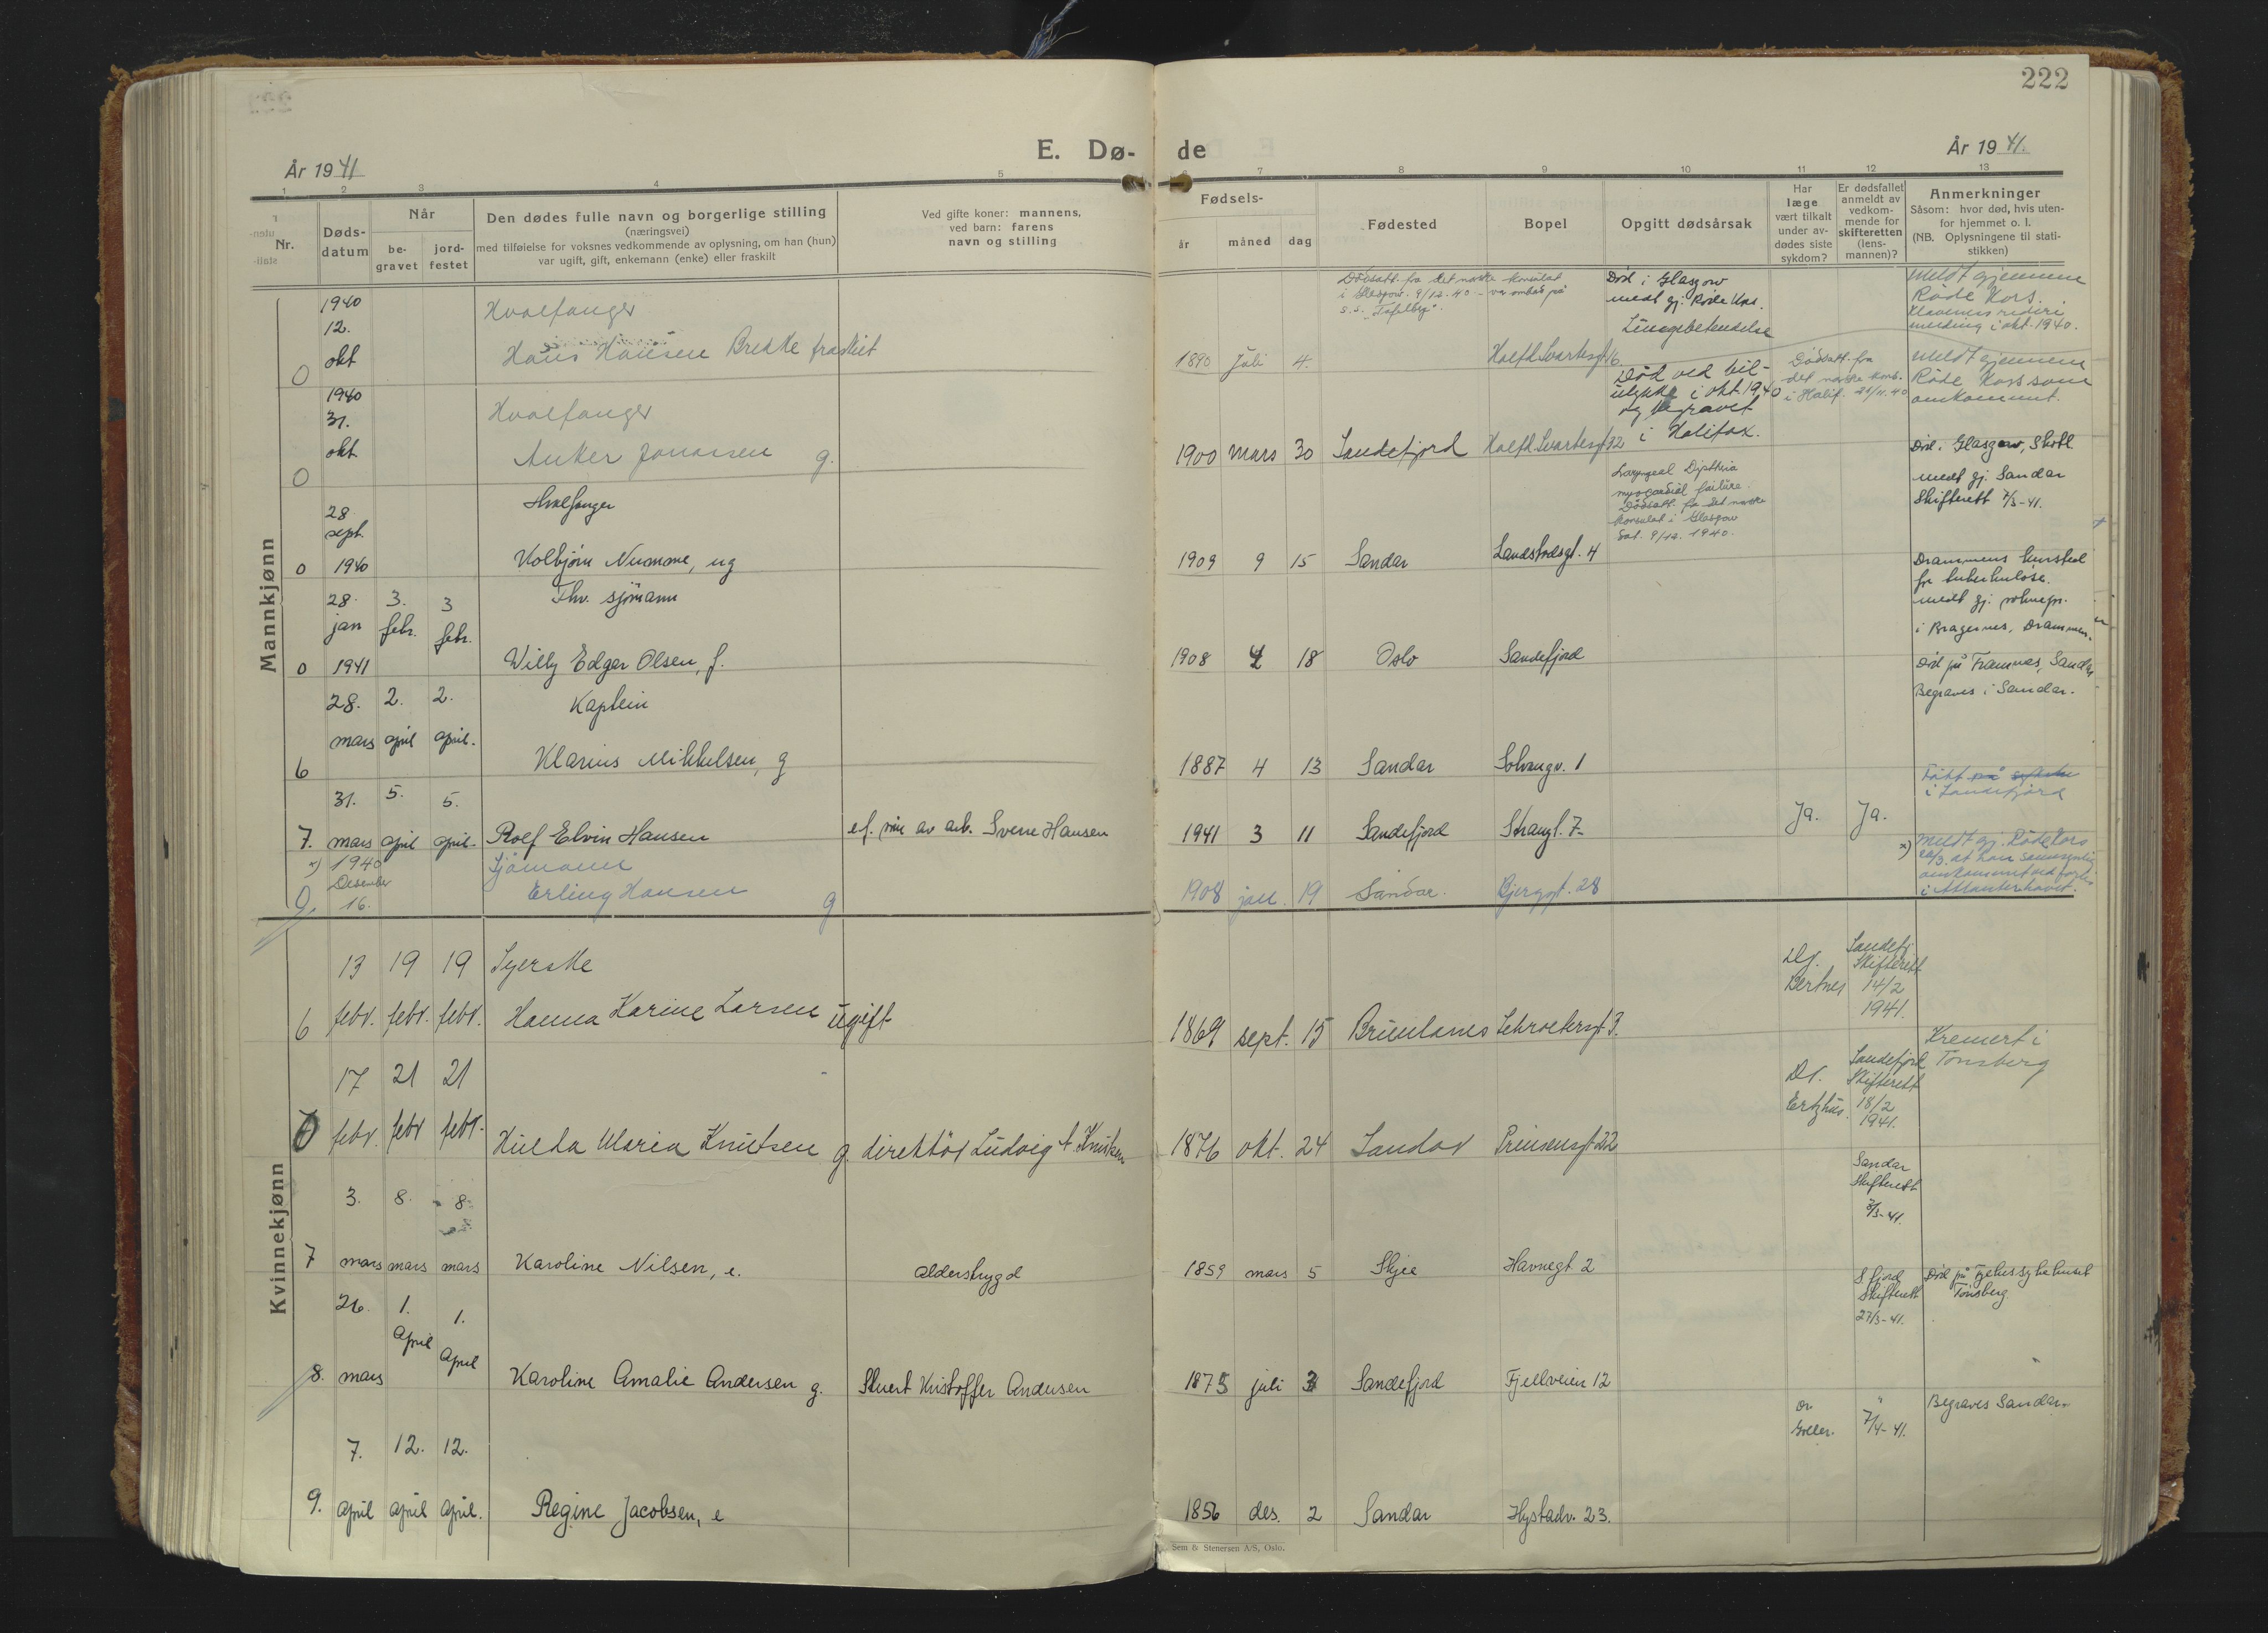 222
E. Dø- de
År 1941
År 1941.
1 2 3 4 5 7 8 9 10 11 12 13
Nr.
Døds-
datum
Når
be-
gravet
jord-
festet
Den dødes fulle navn og borgerlige stilling
(næringsvei)
med tilføielse for voksnes vedkommende av oplysning, om han (hun)
var ugift, gift, enkemann (enke) eller fraskilt
Ved gifte koner: mannens,
ved barn: farens
navn og stilling
Fødsels-
år måned dag
Fødested
Bopel
Opgitt dødsårsak
Har
læge
vært tilkalt
under av-
dødes siste
sykdom?
Er dødsfallet
anmeldt av
vedkom-
mende for
skifteretten
(lens-
mannen)?
Anmerkninger
Såsom: hvor død, hvis uten-
for hjemmet o. l.
(NB. Oplysningene til stati-
stikken)
Mannkjønn
0
1940
12.
okt
Hvalfanger
Hans Hansen Brekke fraskilt
1890 Juli 4.
Dödsatt. fra det norske konsulat
i Glasgow. 9/12.40 - var ombord på
s.s. "Tafelberg".
Død i Glasgow
meldt gj. Røde Kors.
Lungebetendelse
Meldt gjennem
Røde Kors.
Klaveness rederi
melding i okt. 1940.
0
1940
31.
okt
Hvalfanger
Anker Jonassen g.
1900 mars 30 Sandefjord
Død ved bil-
ulykke i okt. 1940
og begravet
i Halifax.
Dödsatt. fra
det norske kons.
i Halif. 21/11.40
Meldt gjennem
Røde Kors som
omkommet.
0
28
sept.
1940
Hvalfanger
Kolbjørn Numme, ug
1909 9 15 Sandar Landstadsgt. 4
Laryngeal Diptheria
myocardial failure.
Dödsatt. fra det norske
konsulat i Glasgow
dat. 9/12. 1940.
Død i Glasgow, Skotl.
meldt gj. Sandar
Skifterett 7/3-41.
0
28. 3. 3
jan febr. febr.
1941
Fhv. sjömann
Willy Edgar Olsen, f.
1908 4 18 Oslo Sandefjord
Drammens kursted
for tuberkulose.
meldt gj. soknepr.
i Bragernes, Drammen.
6
28. 2. 2.
mars april april.
Kaptein
Klarius Mikkelsen, g
1887 4 13 Sandar Solvangv. 1
Død på Framnes, Sandar
Begraves i Sandar.
7.
31. 5. 5.
mars april april.
Rolf Elvin Hansen
af. Sverre Hansen
1941 3 11 Sandefjord Strangt. 7.
Ja. Ja.
Født på
i Sandefjord
x) 1940
Desember
16.
Sjömann
Erling Hansen g
1908 jan. 19 Sandar. Bjerggt. 28
x) Meldt gj. Röde Kors
22/3. at han sannsynlig
omkommet ved forlis
i Atlanterhavet.
Kvinnekjønn
6
13 19 19
febr. febr. febr.
Syerske
Hanna Karine Larsen ugift
1869 sept. 15 Brunlanes Schrøtersgt 3.
Dr.
Bertnes
Sandefj.
Skifterett
14/2
1941.
17 21 21
febr. febr febr.
Hulda Maria Knutsen g. direktör Ludvig A. Knutsen
1876 okt. 24 Sandar Prinsensgt 22
Dr.
Ertzhus.
Sandefjord
Skifterett
18/2
1941.
Kremert i
Tönsberg
7
3. 8. 8.
mars mars mars
Karoline Nilsen, e.
alderstrygd
1859 mars 5 Skjee Havnegt 2
Sandar
Skifterett
3/3-41.
8.
26. 1. 1.
mars April April
Karoline Amalie Andersen g.
Stuert Kristoffer Andersen
1875 juli 3 Sandefjord Fjellveien 12
S fjord
Skifterett
27/3-41.
Død på fylkessykehuset
Tönsberg.
9.
7. 12. 12.
April April April.
Regine Jacobsen, e
1856 des. 2 Sandar Hystadv. 23.
Dr.
" 7/4-41.
Begraves Sandar.
Sem & Stenersen A/S, Oslo.